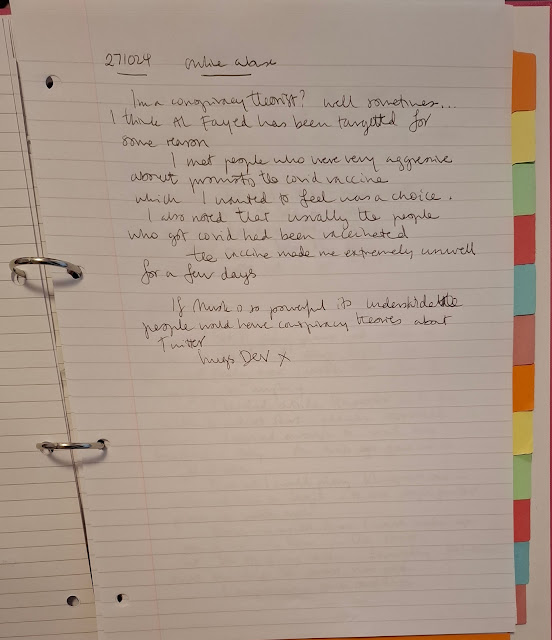 271024 online abuse
Im a conspiracy theorist? well sometimes...
I think AL Fayed has been targetted for
some reason
I met people who were very aggressive
about promoting the covid vaccine
which I wanted to feel was a choice.
I also noted that usually the people
who got covid had been vaccinated
the vaccine made me extremely unwell
for a few days
If Musk is so powerful its understandable
people would have conspiracy theories about
Twitter
hugs Dev X